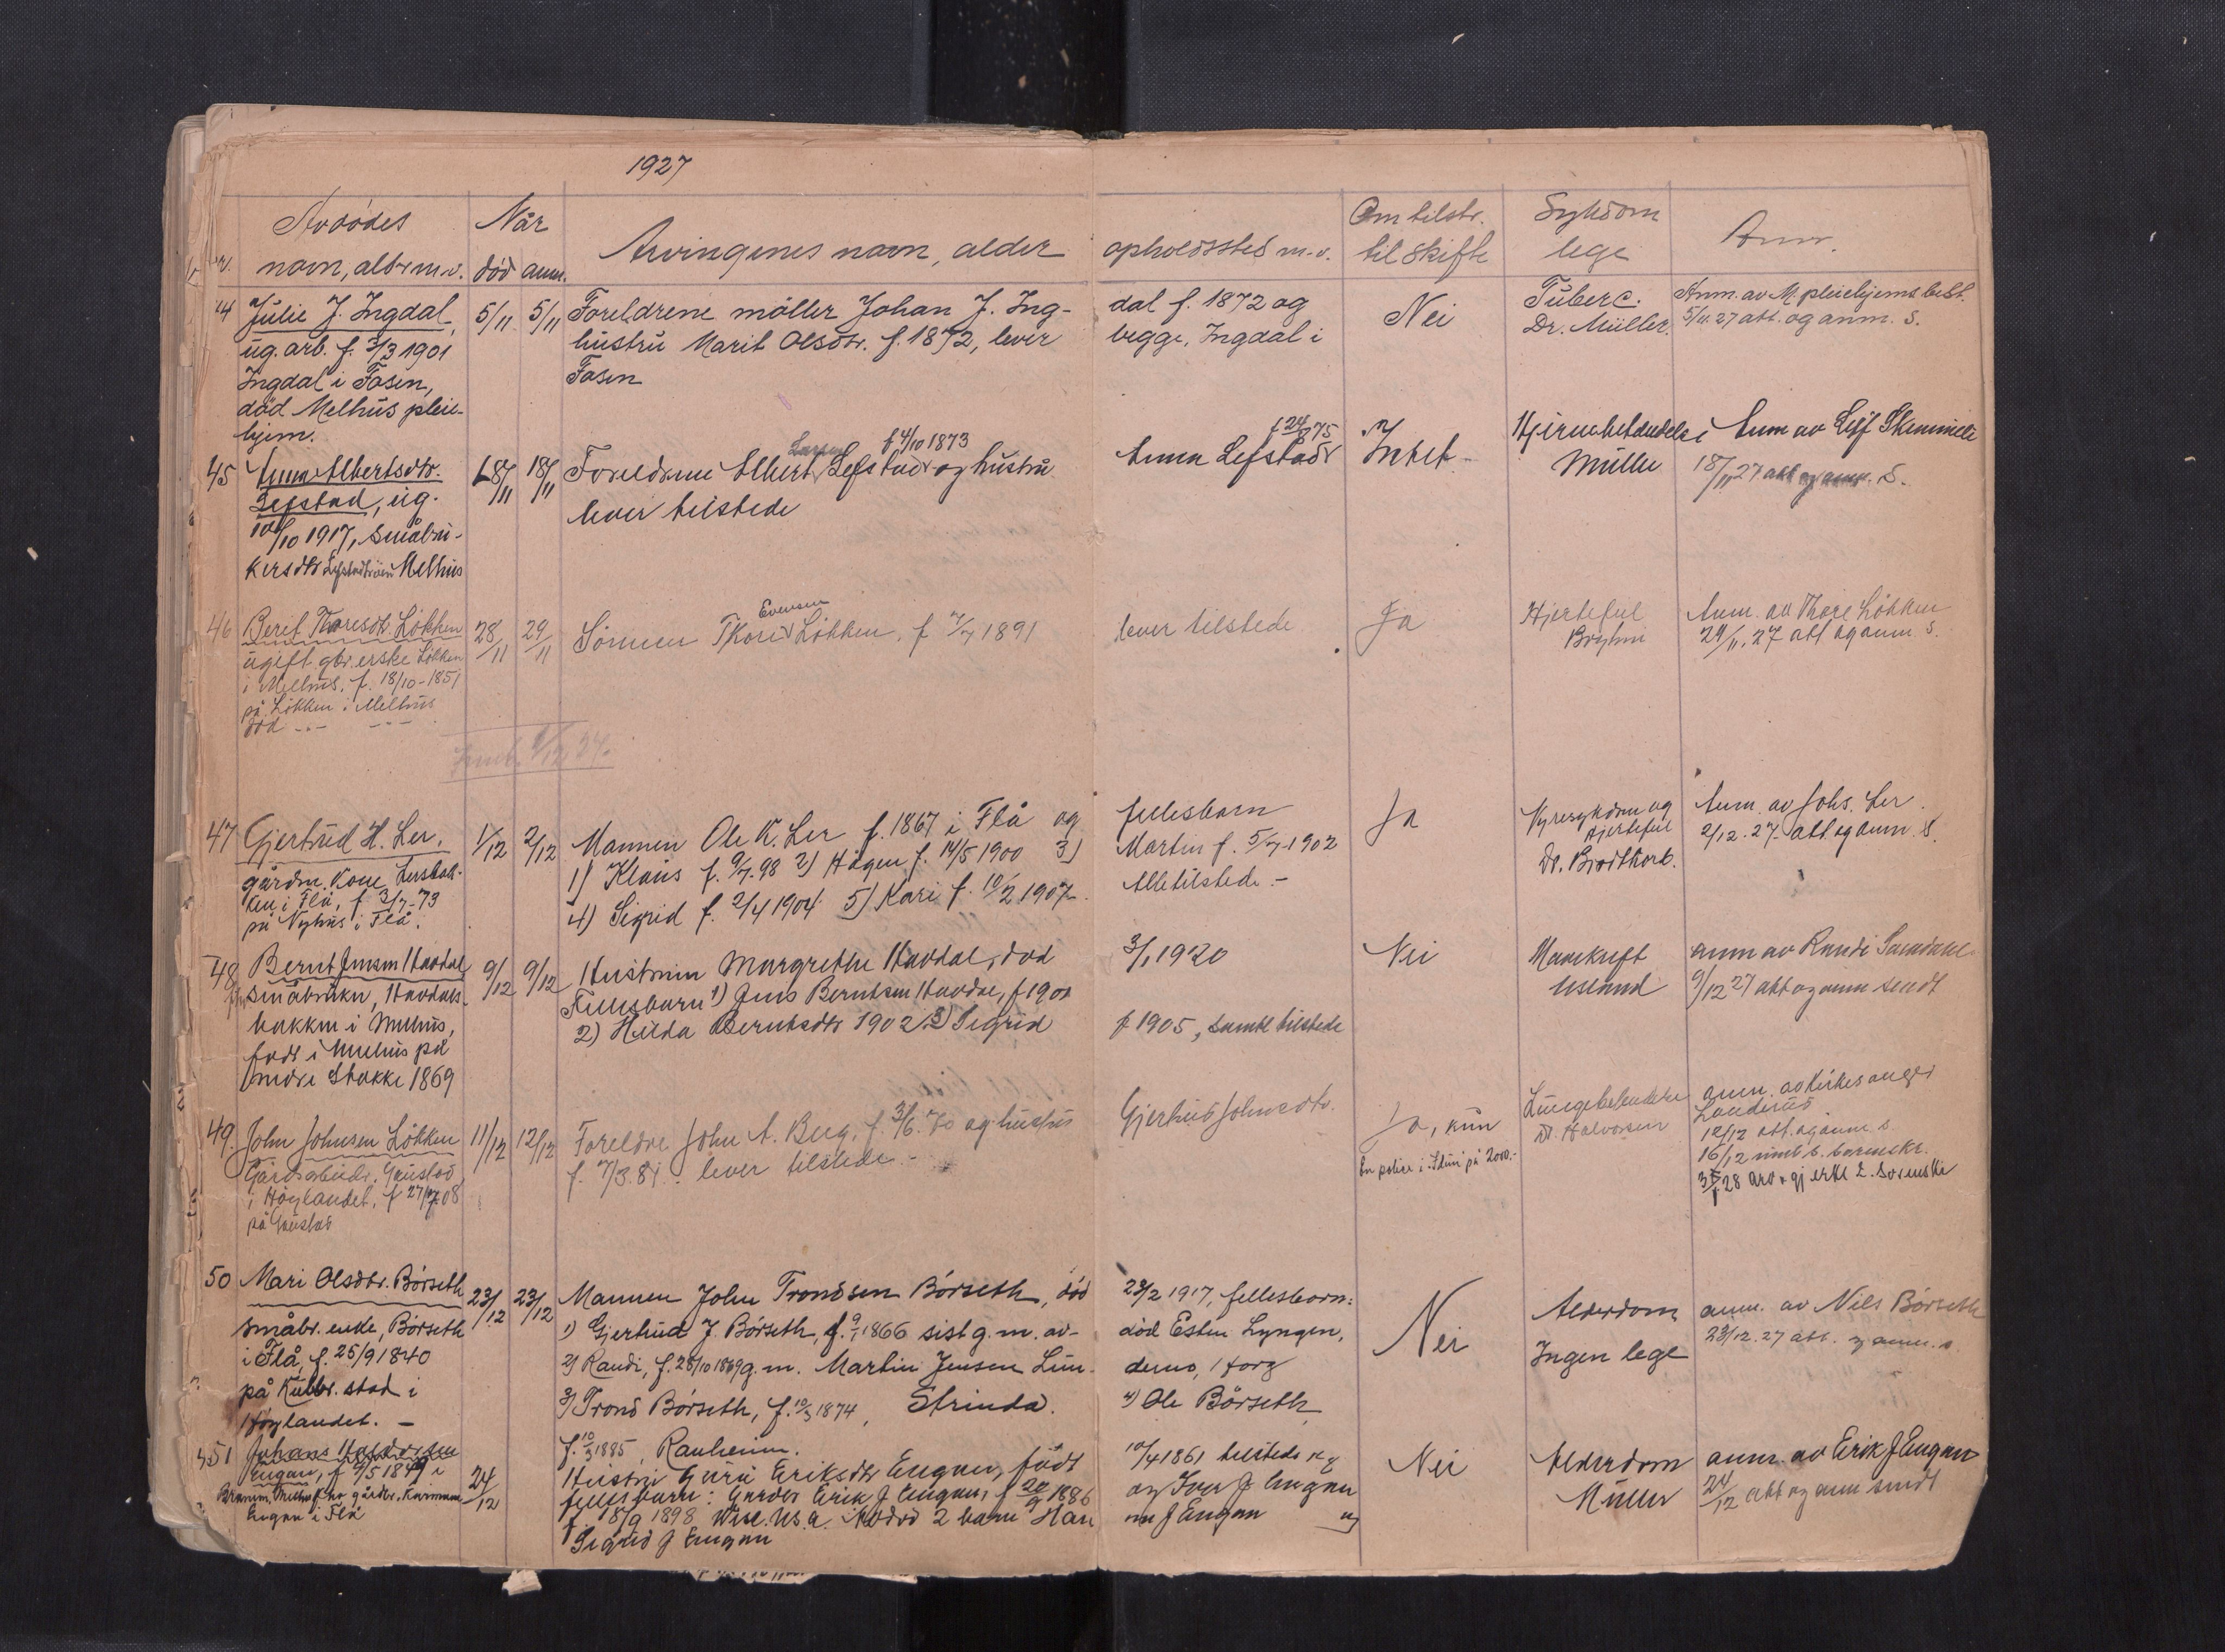 1927
Avdødes
navn, alder m.v.
Når
død anm.
Arvingenes navn, alder
opholdssted m.v.
Om tilstr.
til skifte
Sykdom
lege
Anm.
44 Julie J. Ingdal,
ug. arb. f. 3/3 1901
Ingdal i Fosen,
død Melhus pleie-
hjem.
5/11 5/11
Foreldrene möller Johan J. Ing-
hustru Marit Olsdtr. f. 1872, lever
Fosen
dal f. 1872 og
begge, Ingdal i
Nei
Tuberc.
Dr. Müller.
Anm. av M. pleiehjems best.
5/11.27 att. og anm. s.
45 Anna Albertsdtr.
Lefstad, ug.
10/10 1917, småbru-
kersdtr Melhus
18/11 18/11
f 4/10 1873
Foreldrene Albert Larsen Lefstad og hustru
lever tilstede
Anna Lefstad
Intet-
Hjernebetendelse
Müller
Anm av Leif Skemmeli
18/11 27 att og anm. S.
46 Berit Thoresdt. Løkken
ugift gbr.erske Løkken
i Melhus. f. 18/10-1851
på Løkken i Melhus
død
28/11 29/11
Evensen
Sønnen Thore Løkken, f 7/7 1891
lever tilstede
Ja
Hjertefeil
Anm. av Thore Løkken
29/11.27 att og anm. S.
47 Gjertrud H. Ler.
gårdm. kone Lersbak-
ken i Flå, f 3/7-73
på Nyhus i Flå.
1/12 2/12
Mannen Ole K. Ler f. 1867 i Flå og
1) Klaus f. 9/7.98 2) Hågen f. 14/5 1900 3)
4) Sigrid f. 2/4 1904 5) Kari f. 10/2 1907
fellesbarn
Martin f. 5/7-1902
Alle tilstede.-
Ja
Nyresykdom og
Hjertefeil
Dr. Brodtkorb.
Anm. av Johs. Ler.
2/12.27. att og anm. S.
48 Bernt Jensen Havdal
småbruker, Havdals-
bakken i Melhus,
født i Melhus på
Indre Stokke 1869
9/12 9/12
Hustruen Margrethe Havdal, død
Fellesbarn 1) Jens Berntsen Havdal, f 1900
2) Hilda Berntsdtr 1902 3) Sigrid
3/1 1920
f 1905, samtl tilstede
Nei
Mavekreft
Usland
anm av Randi
9/12 27 att og anm sendt
49. John Johnsen Løkken
Gårdsarbeidr. Gaustad
i Høylandet. f 27/7.08
på Gaustad
11/12 12/12
Foreldre John A. Berg, f. 3/6.70 og hustru
f. 7/3.81. lever tilstede.-
Gjertrud Johnsdtr.
Ja, kun
En police i Idun på 2000.-
Lungebetendelse
Dr. Halvorsen
anm. av kirkesanger
Landerud
12/12 att. og anm. s.
16/12
50 Mari Olsdtr. Börseth
småbr. enke, Börseth
i Flå, f. 25/9 1840
på Kulbr. stad i
Høylandet. -
23/12 23/12
Mannen John Trondsen Börseth, død
1) Gjertrud J. Börseth, f. 9/1 1866 sist g. m. av-
2) Randi, f. 28/10 1869 g. m. Martin Jensen Lun-
3) Trond Börseth, f. 10/3 1874, Strinda.
f. 10/3 1885, Ranheim.
23/2 1917, fellesbarn:
død Esten Lyngen,
demo, Horg
4) Ole Börseth
Nei
Alderdom
Ingen lege
anm. av Nils Börseth
23/12.27 att. og anm. s.
51 Johans Haldorsen
Engan, f 9/5 1849 i
Engan i Flå
24/12
Hustru Guru Eriksdtr Engan, født
fellesbarn: Gårdbr Erik J Engan, f 20/9 1886
f 18/9 1898 Wisc. U.S.A. Avdød 2 barn
Sigrid J Engan
10/4 1861 tilstede og
og Ivar J Engan
J Engan
Nei
Alderdom
Müller
anm. av Erik J Engan
24/12 att og anm sendt